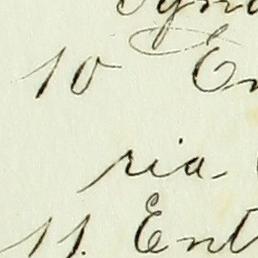 10 En
ria
11. Ent